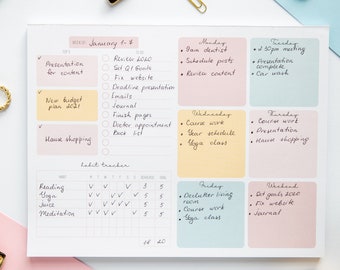 WEEKLY January 1-7
Presentation
for content
New budget
plan 2021
House shopping
Review 2020
Set Q1 Goals
Fix website
Deadline presentation
Emails
Journal
Finish pages
Doctor appointment
Book list
Monday
9am dentist
Schedule posts
Review content
Tuesday
2:30pm meeting
Complete presentation
Car wash
Wednesday
Course work
Year schedule
Yoga class
Thursday
Course work
Presentation
House shopping
Friday
Declutter living
room
Course work
Yoga class
Weekend
Set goals 2020
Fix website
Journal
habit tracker
HABIT M T W T F S S
Reading 3 5
Yoga 5 5
Juice 5 5
Meditation 5 5
20